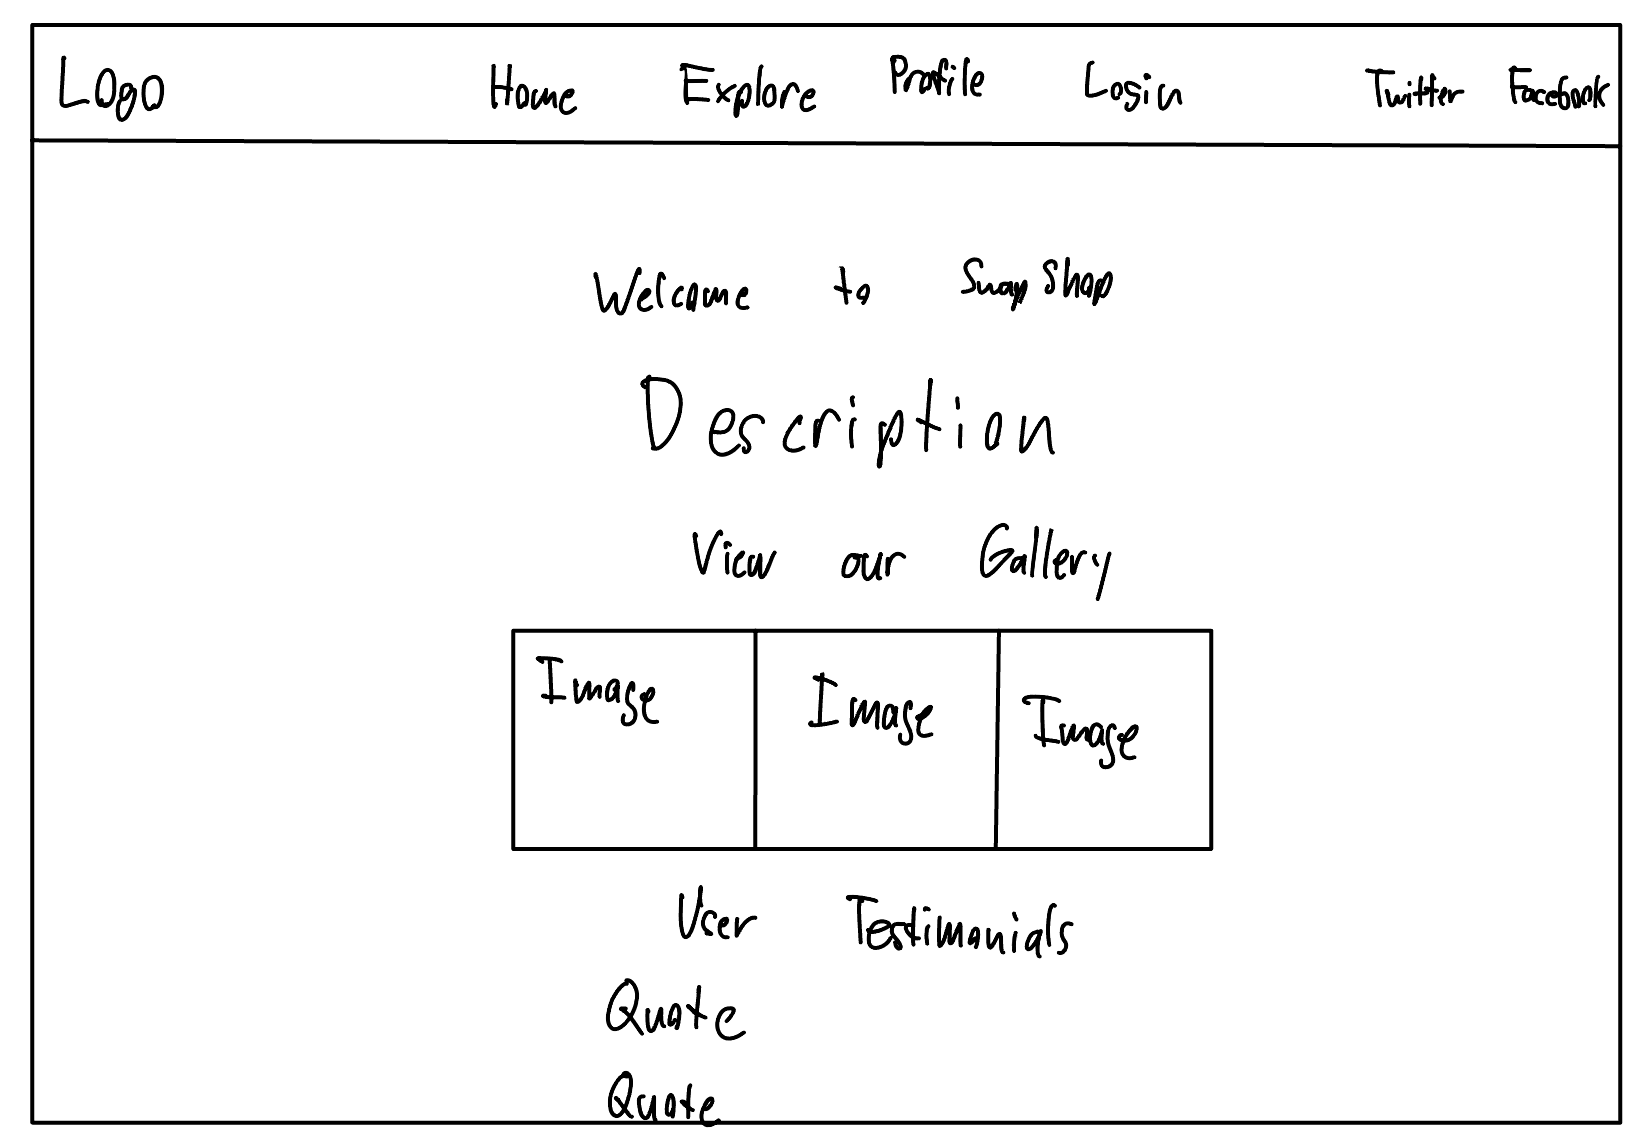 Logo Home Explore Profile Login Twitter Facebook
Welcome to SnapShop
Description
View our Gallery
Image Image Image
User Testimonials
Quote
Quote